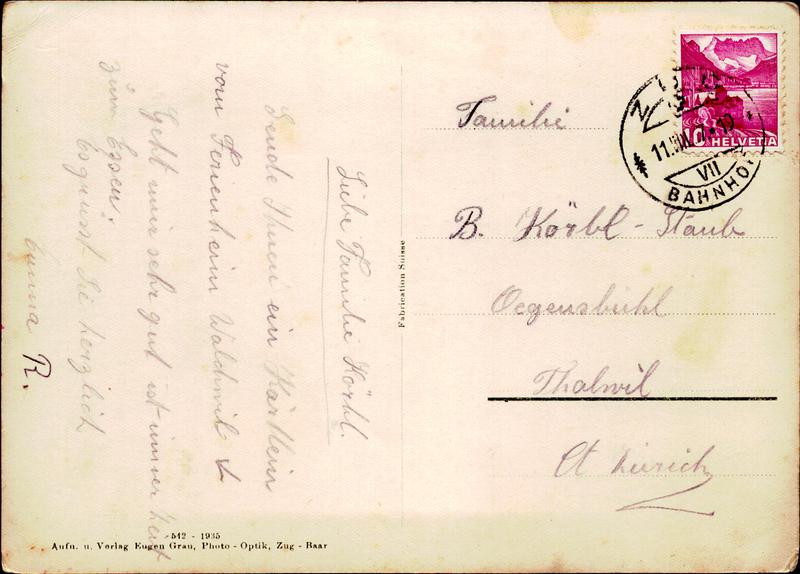 Liebe Familie Körbl.
Sende Ihnen ein Kärtlein
vom Ferienheim Walchwil &
Geht mir sehr gut ist immer
zum Essen.
Es grüsst Sie herzlich
Anna R.
Fabrication Suisse
542 - 1935
Aufn. u. Verlag Eugen Grau, Photo - Optik, Zug - Baar
HELVETIA
10
BAHNHOF
VII
Familie
B. Körbl - Staub
Oegensbühl
Thalwil
Ct Zürich